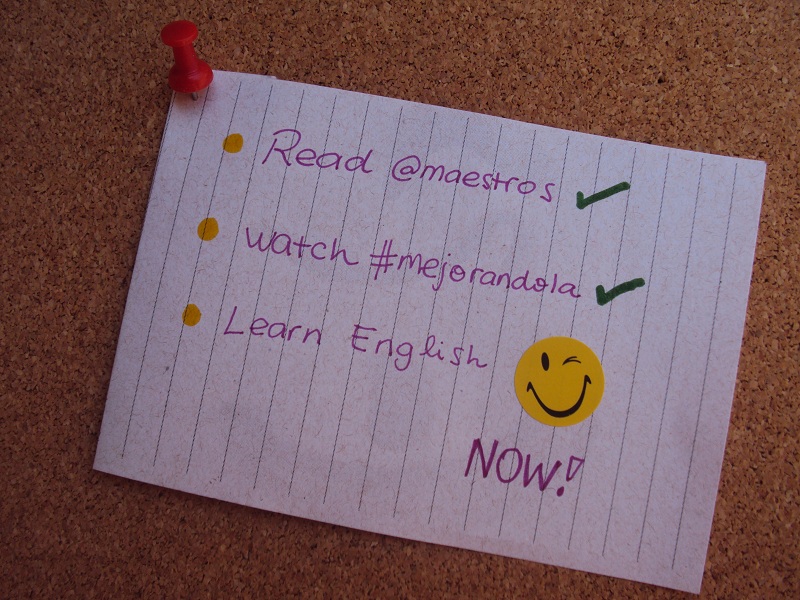 Read @maestros
watch #mejorandola
Learn English
NOW!